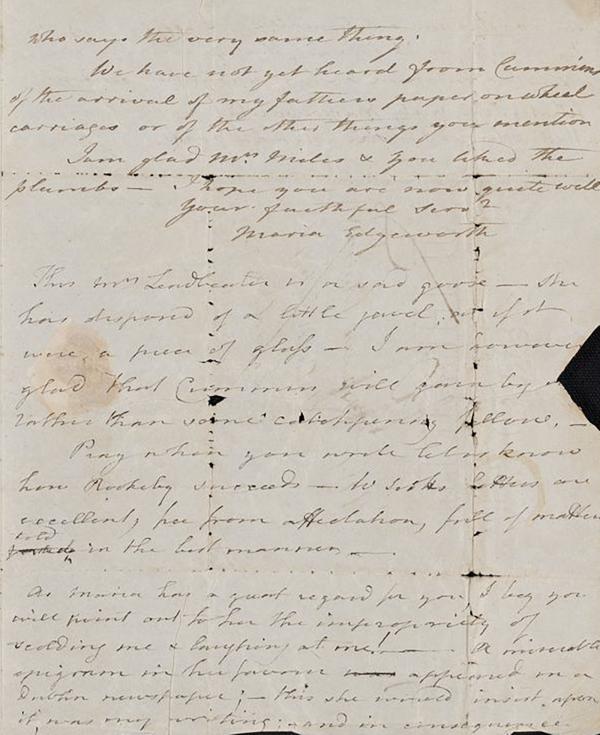 who says the very same thing.
We have not yet heard from Cumming
of the arrival of my fathers paper on wheel
carriages or of the other things you mention
I am glad Mrs Miles & you liked the
plumbs — I hope you are now quite well
Your faithful Servt
Maria Edgeworth
This Mrs Leadbeater is a sad goose — She
has disposed of a little jewel, as if it
were a piece of glass — I am however
glad that Cumming will gain by it
rather than some catchpenny fellow. —
Pray when you write let us know
how Rokeby succeeds — W Scotts letters are
excellent, free from affectation, full of matter
told in the best manner —
As Maria has a great regard for you, I beg you
will point out to her the impropriety of
scolding me & laughing at me! — A miserable
epigram in her favour appeared in a
Dublin newspaper; — this she would insist upon
it was my writing; and in consequence